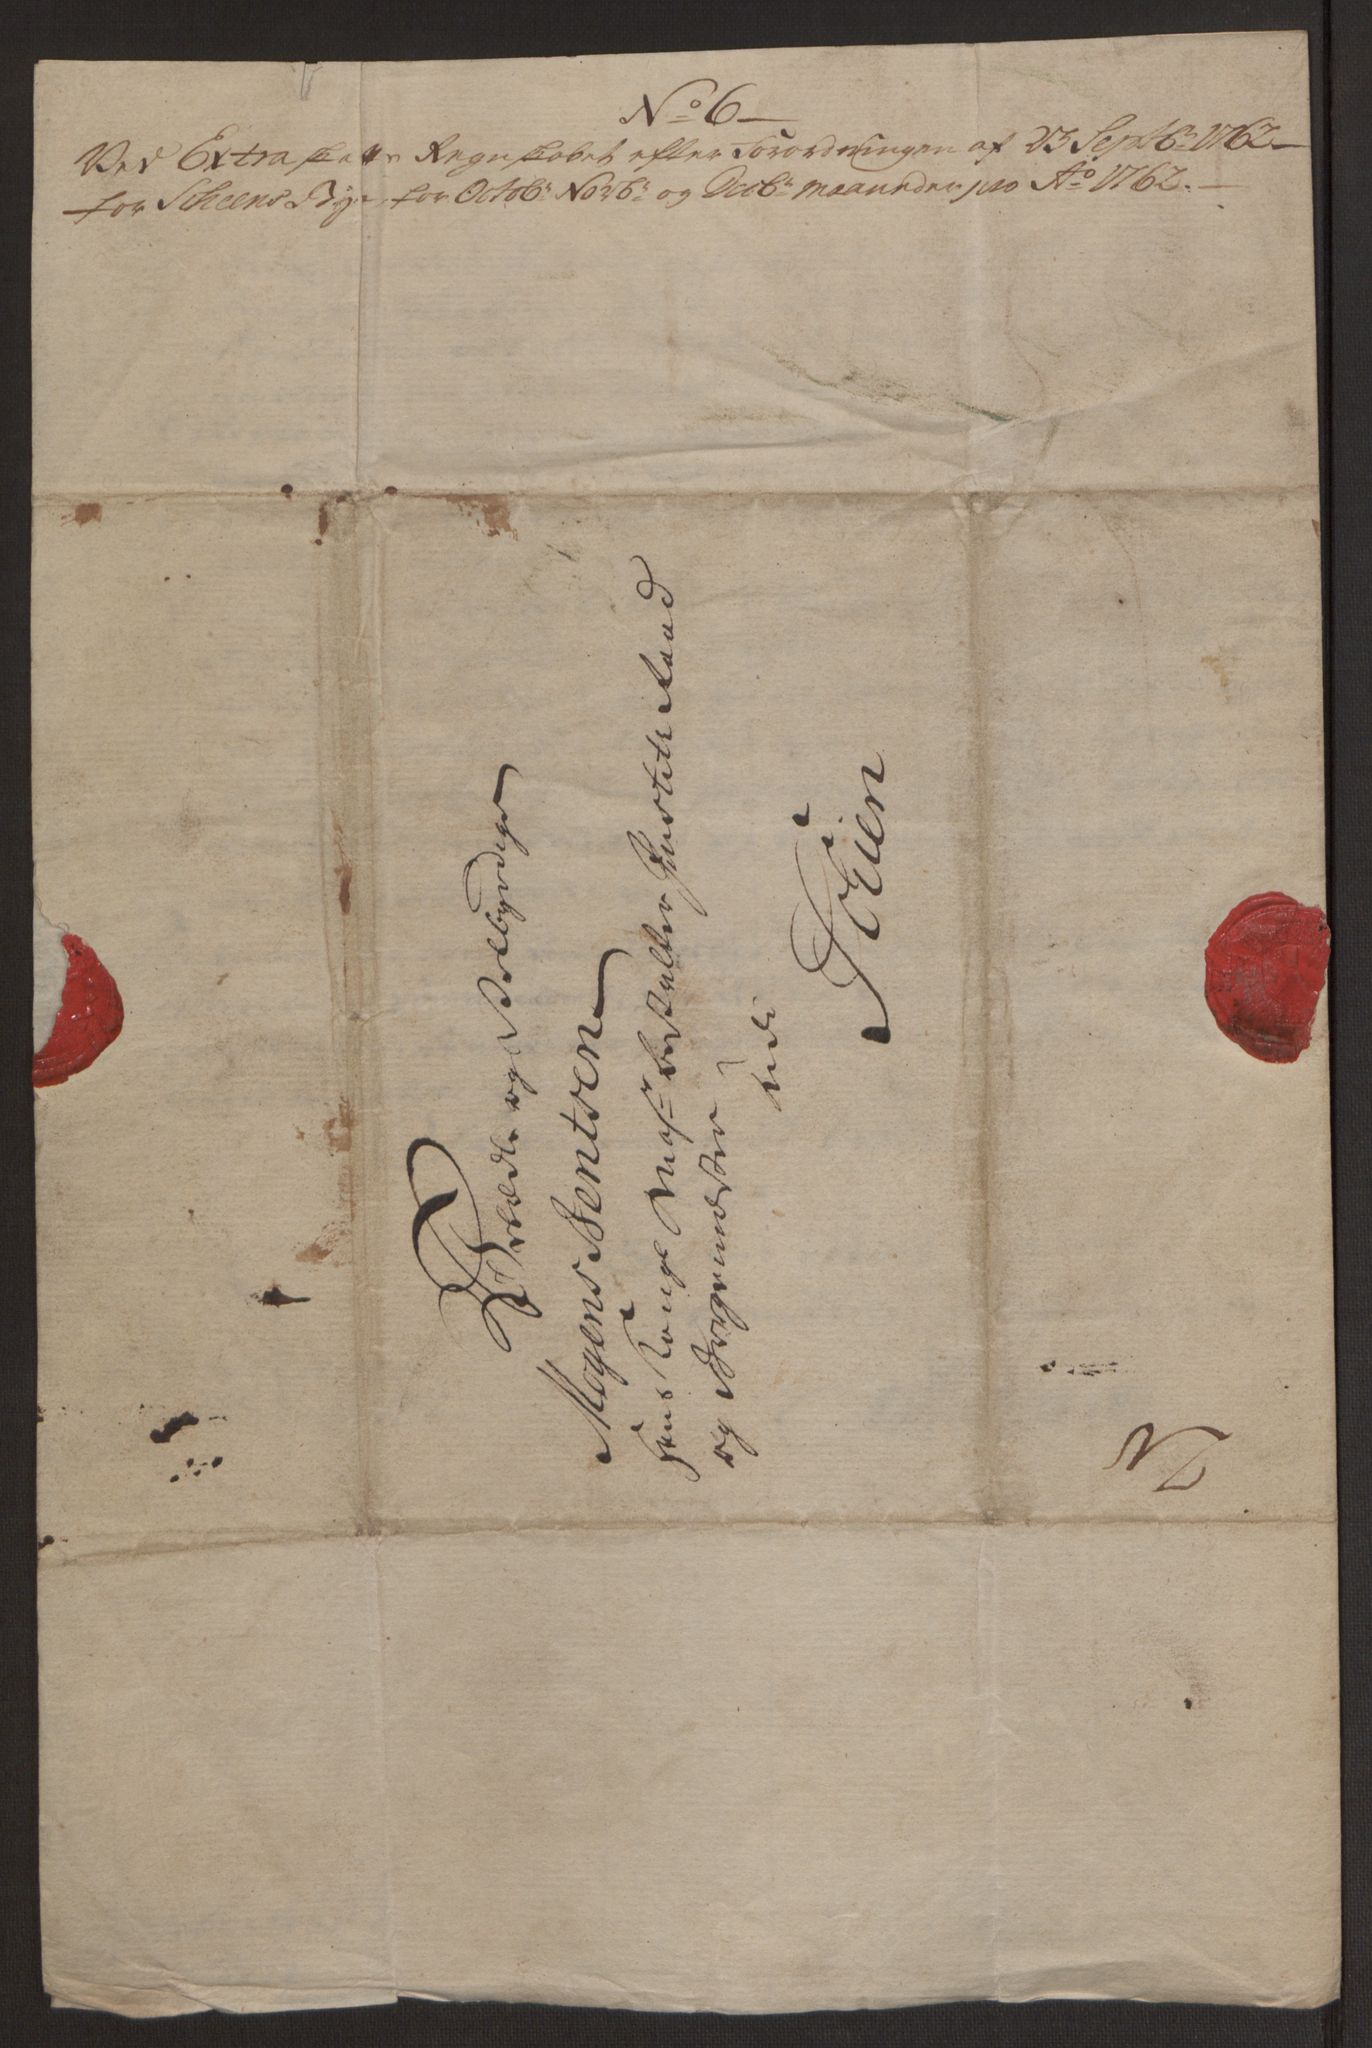 No 6
Ved Extra skatte Regnskabet efter Forordningen af 23 Septbr 1762
for Scheens Bye, for Octobr Novbr og Decbr maaneder pro Ao 1762.
Velædle og Velbyrdige
Mogens Bentsen
Hans Kongl Mays bestalter Justitz Raad
og Borgemester udi
Scheen